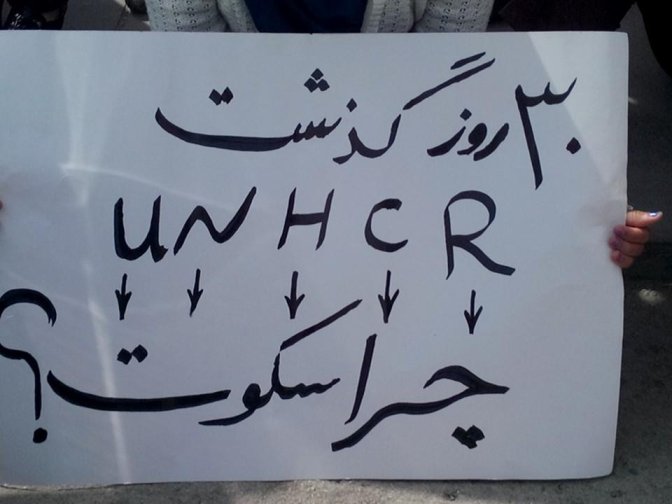 ۳۰ روز گذشت
UNHCR
چرا سکوت؟